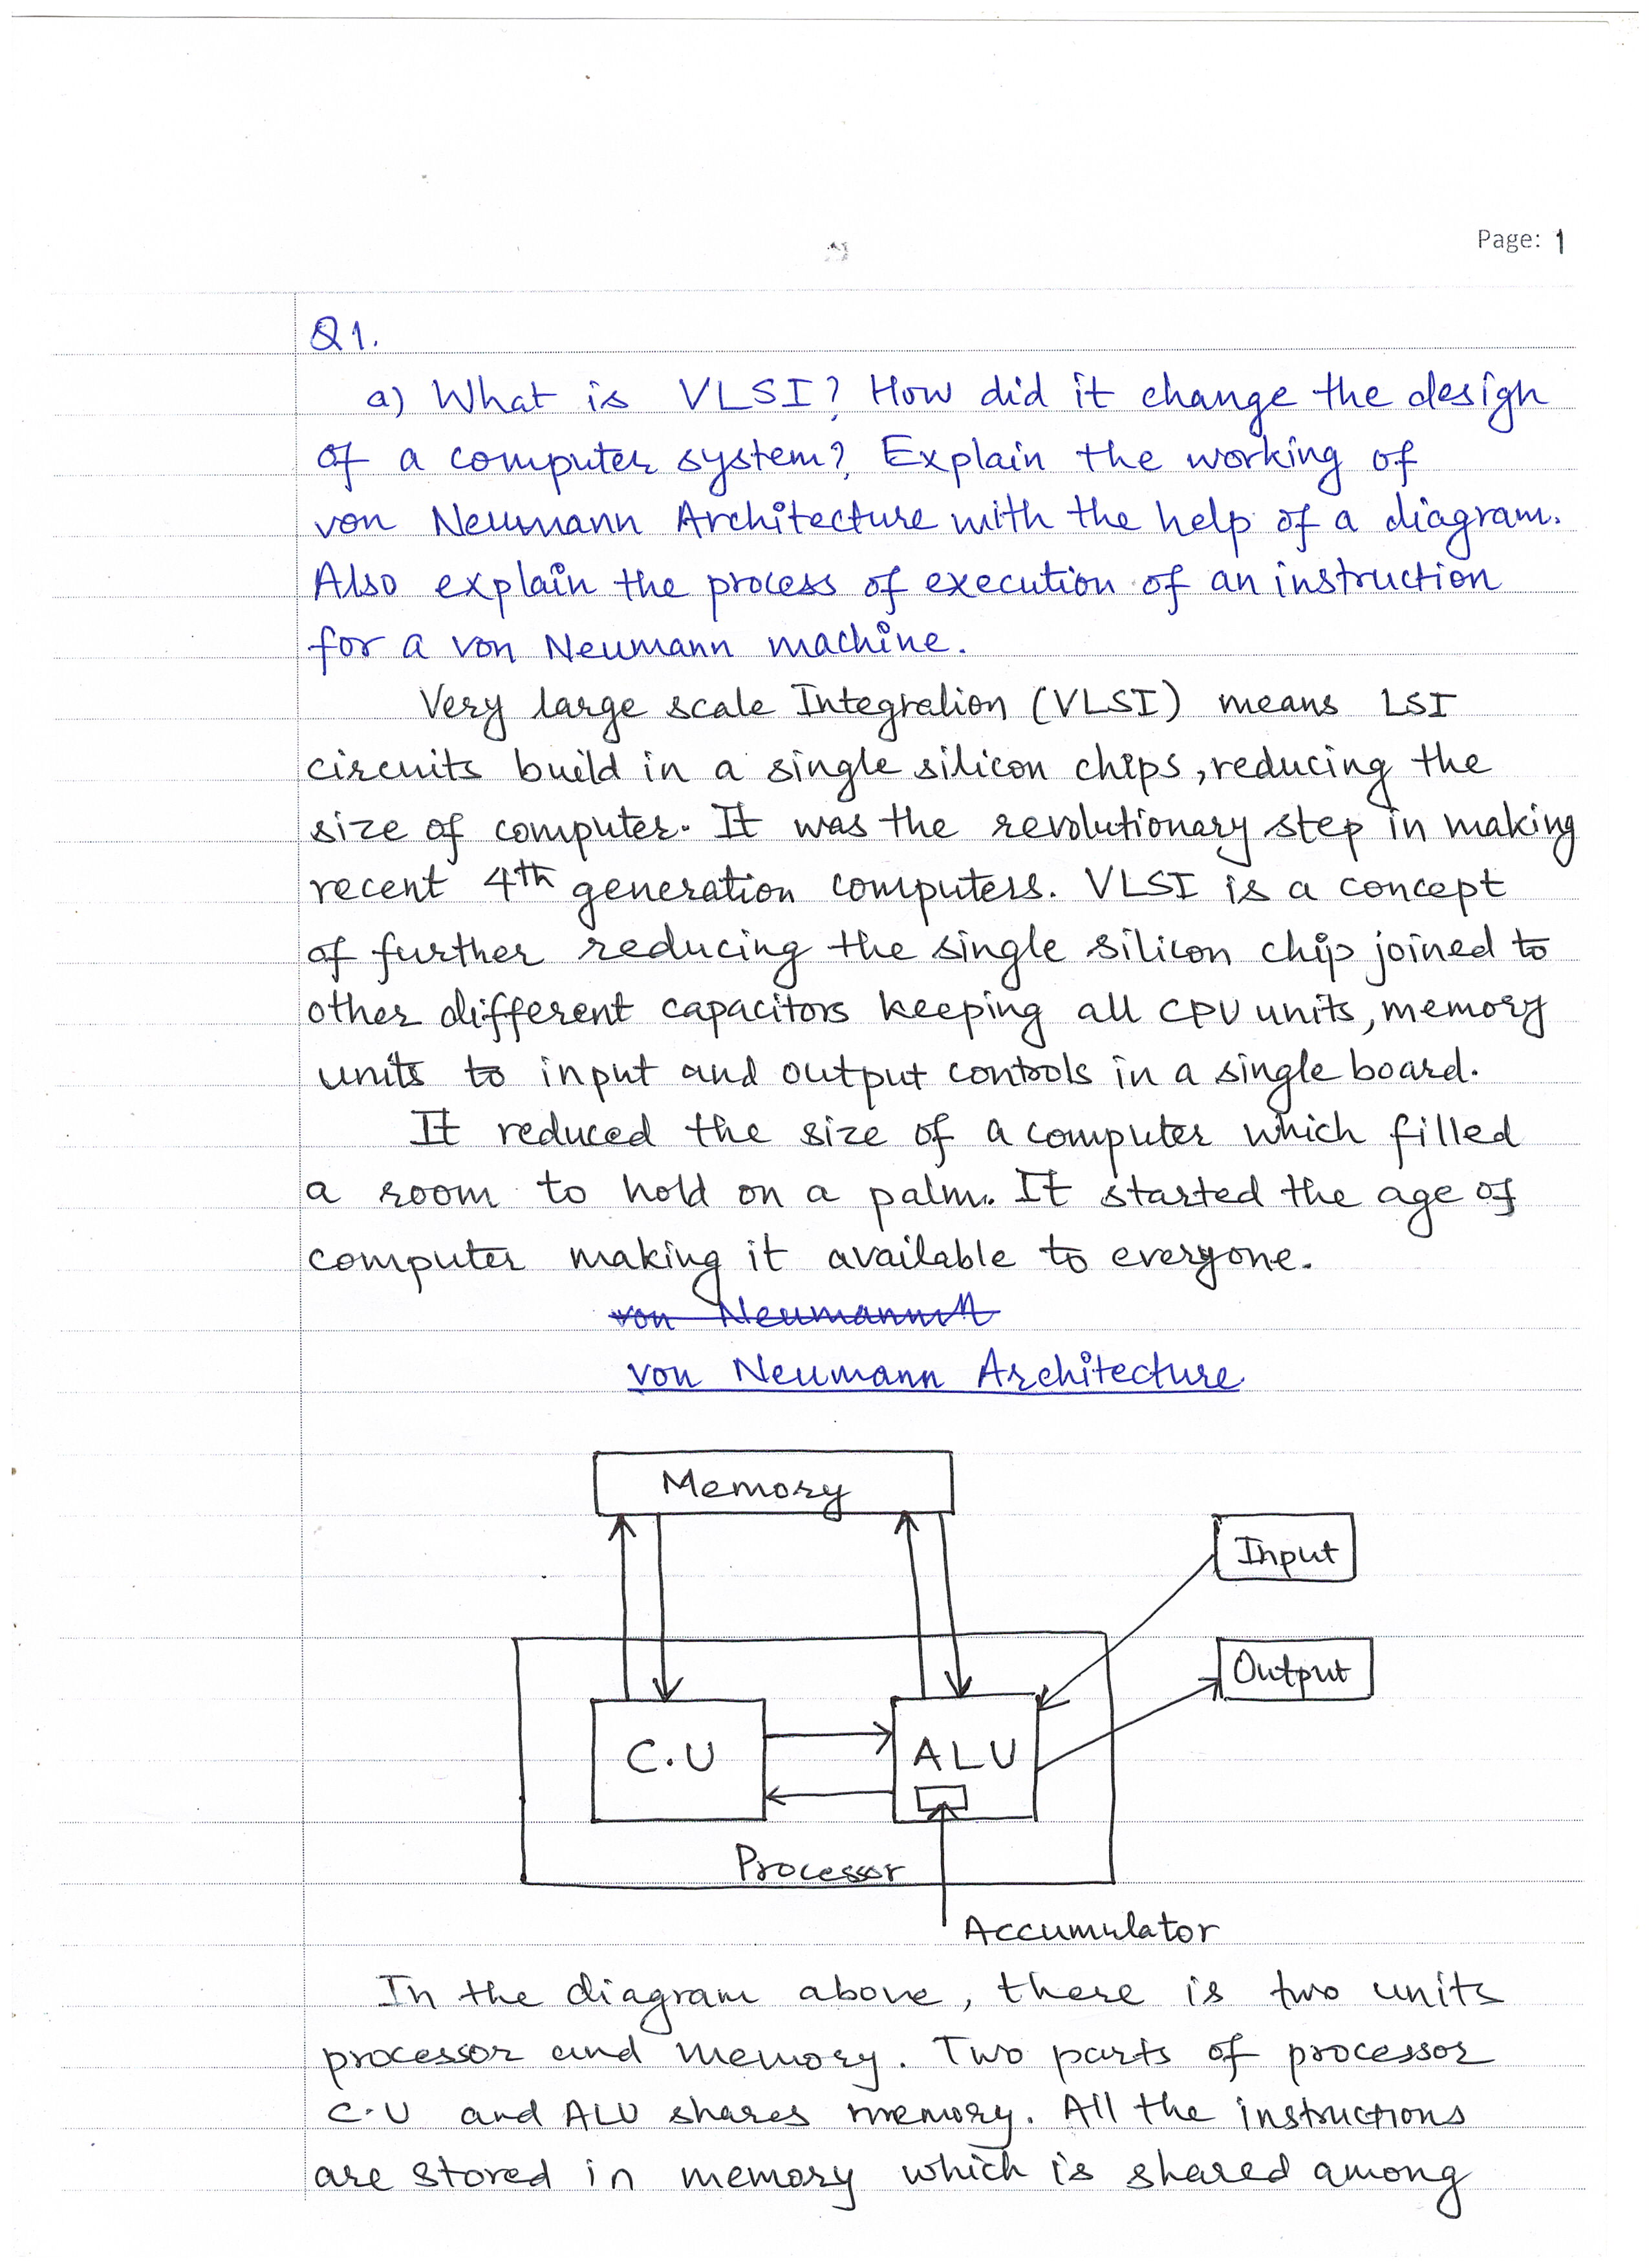 Page: 1
Q1.
a) What is VLSI? How did it change the design
of a computer system? Explain the working of
von Neumann Architecture with the help of a diagram.
Also explain the process of execution of an instruction
for a von Neumann machine.
Very large scale Integration (VLSI) means LSI
circuits build in a single silicon chips, reducing the
size of computer. It was the revolutionary step in making
recent 4th generation computers. VLSI is a concept
of further reducing the single silicon chip joined to
other different capacitors keeping all CPU units, memory
units to input and output controls in a single board.
It reduced the size of a computer which filled
a room to hold on a palm. It started the age of
computer making it available to everyone.
von Neumann A
von Neumann Architecture
Memory
Input
Output
C.U
ALU
Processor
Accumulator
In the diagram above, there is two units
processor and memory. Two parts of processor
C.U and ALU shares memory. All the instructions
are stored in memory which is shared among